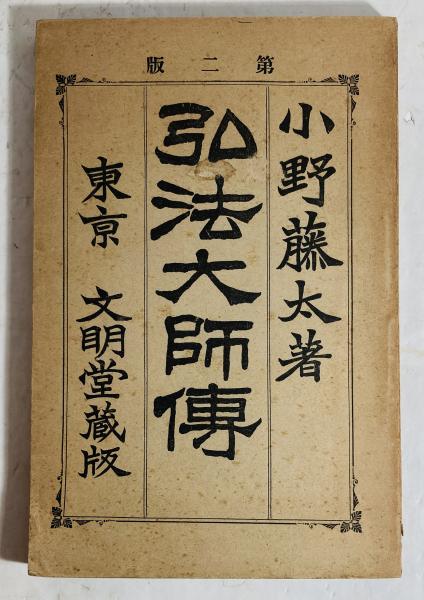 第二版
小野藤太著
弘法大師傳
東京 文明堂蔵版